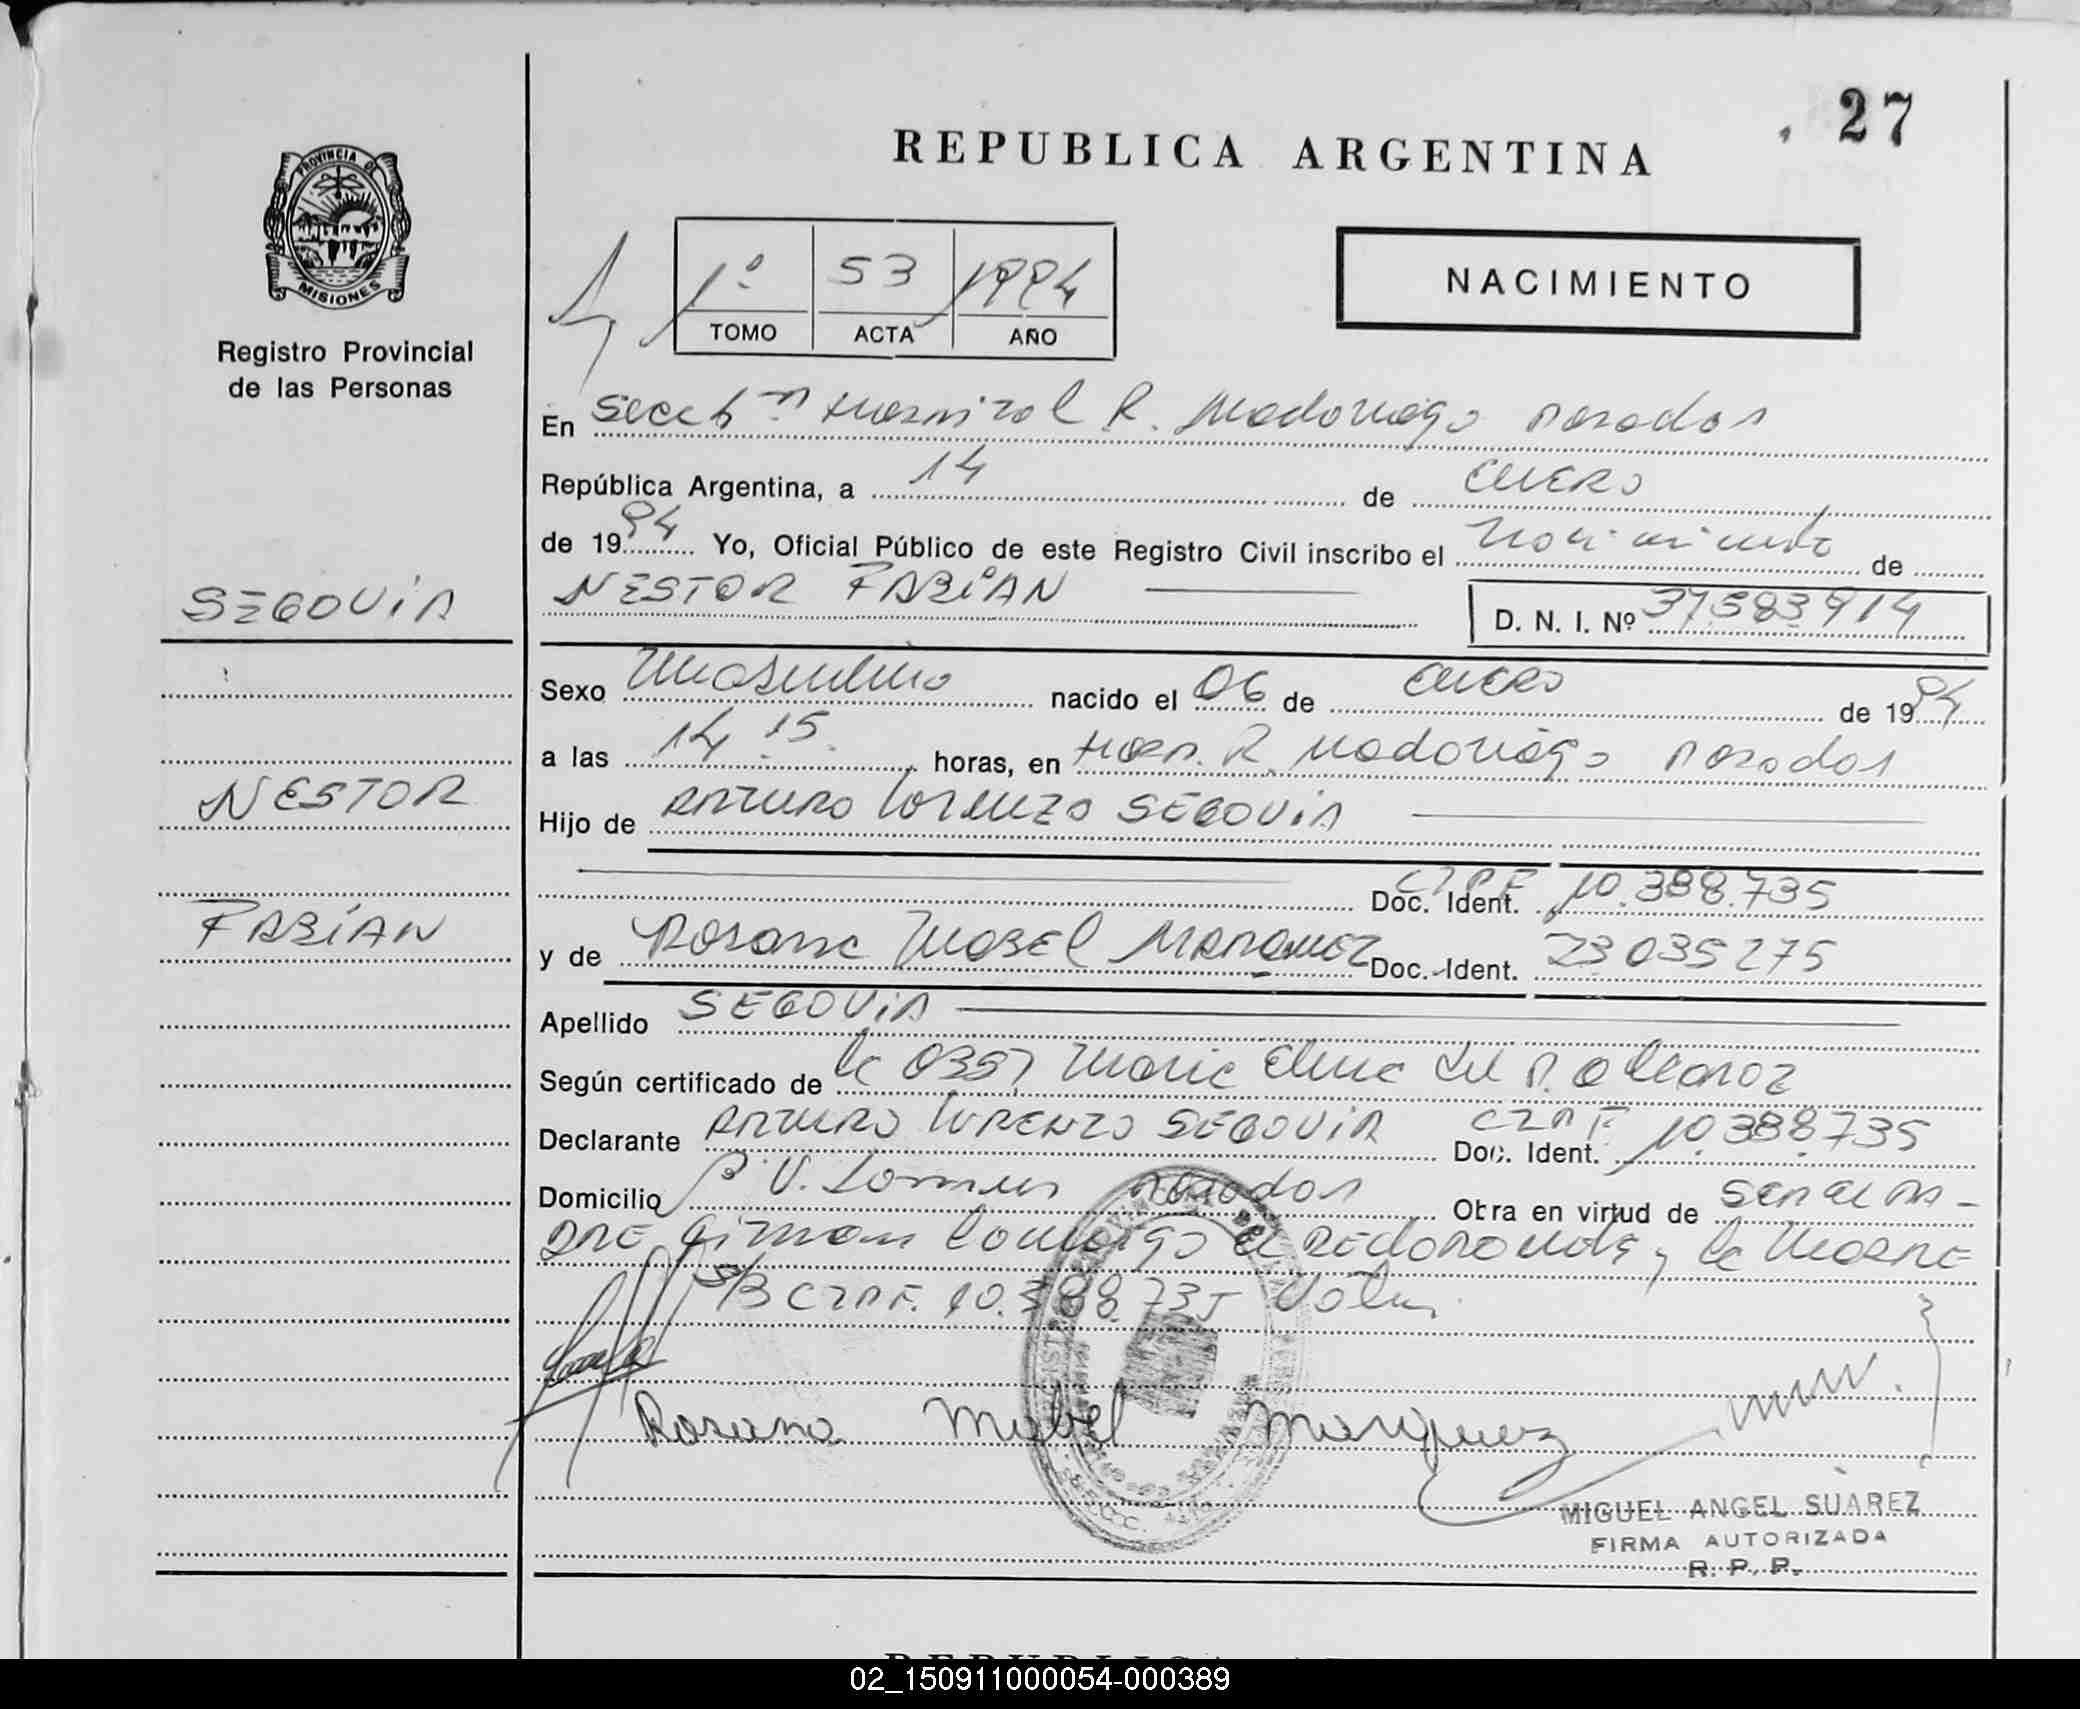 27
REPUBLICA ARGENTINA
PROVINCIA DE
MISIONES
Registro Provincial
de las Personas
1º 53 1994
TOMO ACTA AÑO
NACIMIENTO
En Secc 6ª Hospital R. Madariaga Posadas
República Argentina, a 14 de enero
de 1994 Yo, Oficial Público de este Registro Civil inscribo el Nacimiento de
SEGOVIA
NESTOR FABIAN D. N. I. Nº 37583914
Sexo Masculino nacido el 06 de enero de 1994
a las 14 15 horas, en Hosp. R. Madariaga Posadas
NESTOR
Hijo de ARTURO Lorenzo SEGOVIA
Doc. Ident. CIPF 10.388.735
FABIAN
y de Rosana Mabel MARQUEZ Doc. Ident. 23035275
Apellido SEGOVIA
Según certificado de la 0357 Maria Elena del
Declarante ARTURO LORENZO SEGOVIA Doc. Ident. CIPF. 10.388.735
Domicilio B. V. Posadas Obra en virtud de ser el PA-
DRE firman conmigo el declarante y la MADRE
S/B CIPF. 10.388.735 Vale.
Rosana Mabel Marquez
MIGUEL ANGEL SUAREZ
FIRMA AUTORIZADA
R. P. P.
02_150911000054-000389